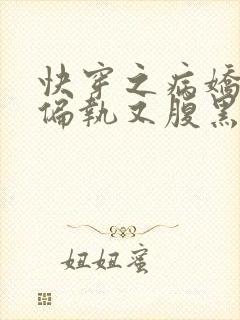 快穿之病嬌
偏執又腹黑
妞妞蜜